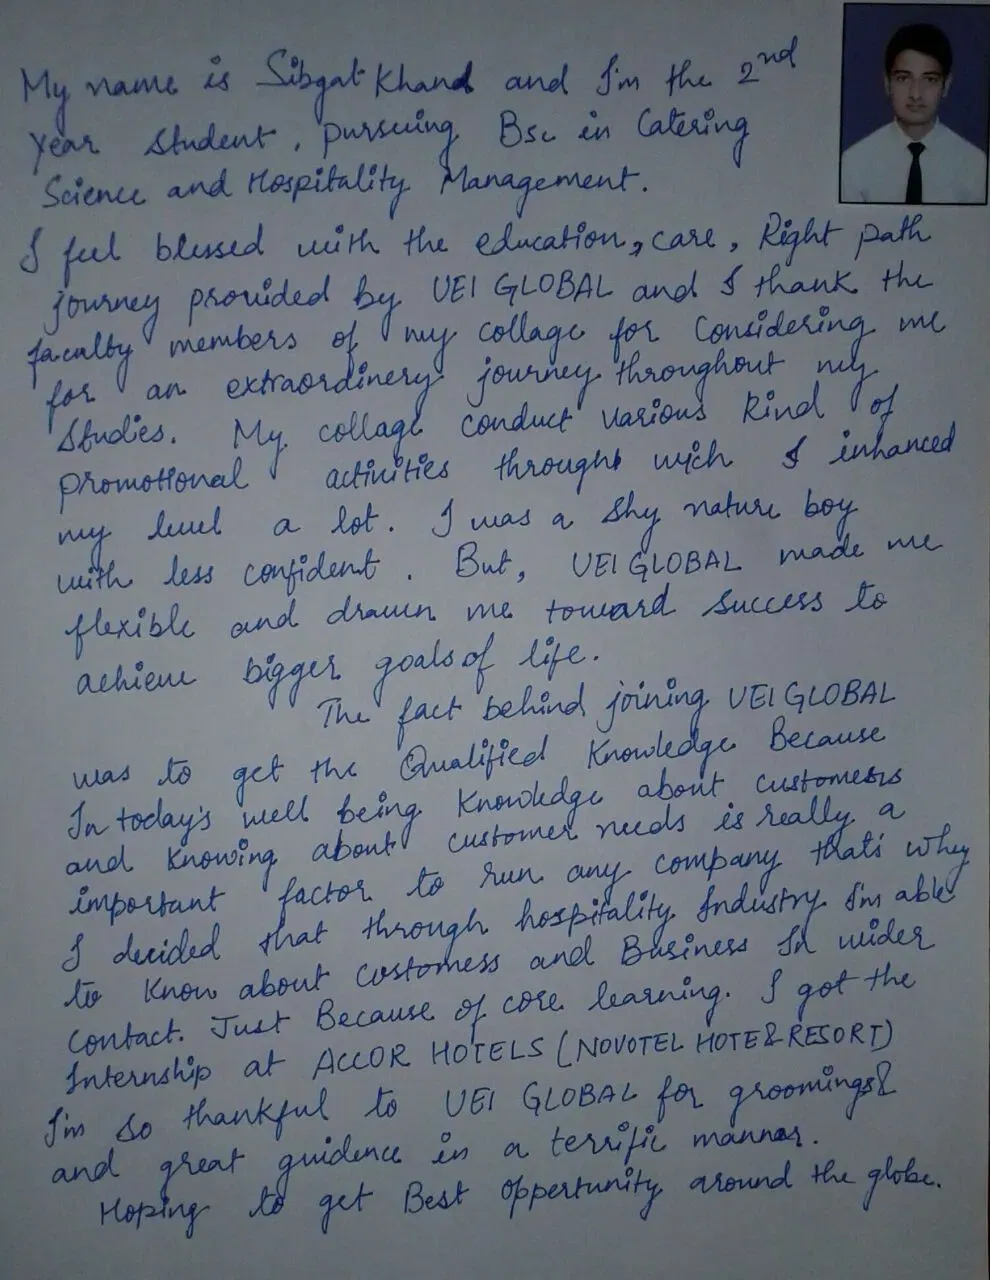 My name is Sibgat Khand and I'm the 2nd
Year Student, pursuing Bsc in Catering
Science and Hospitality Management.
I feel blessed with the education, care, Right path
journey provided by UEI GLOBAL and I thank the
faculty members of my collage for Considering me
for an extraordinery journey throughout my
Studies. My collage conduct various kind of
promotional activities throught wich I inhanced
my level a lot. I was a shy nature boy
with less confident. But, UEI GLOBAL made me
flexible and drawn me toward success to
achieve bigger goals of life.
The fact behind joining UEI GLOBAL
was to get the Qualified Knowledge Because
In today's well being Knowledge about customers
and Knowing about customer needs is really a
important factor to run any company that's why
I decided that through hospitality Industry I'm able
to Know about costomess and Business In wider
contact. Just Because of core learning. I got the
Internship at ACCOR HOTELS (NOVOTEL HOTE& RESORT)
I'm so thankful to UEI GLOBAL for groomings&
and great guidence in a terrific mannar.
Hoping to get Best opportunity around the globe.